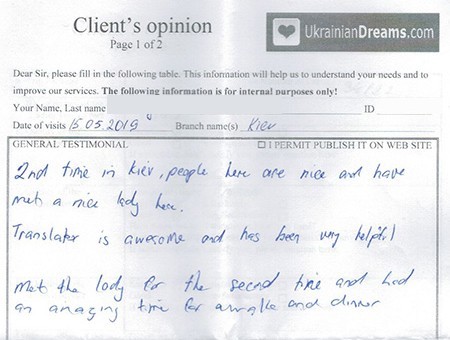 Client's opinion
UkrainianDreams.com
Page 1 of 2
Dear Sir, please fill in the following table. This information will help us to understand your needs and to
improve our services. The following information is for internal purposes only!
Your Name, Last name ID
Date of visits 15.05.2019 Branch name(s) Kiev
GENERAL TESTIMONIAL ☐ I PERMIT PUBLISH IT ON WEB SITE
2nd time in Kiev, people here are nice and have
met a nice lady here.
Translator is awesome and has been very helpful
Met the lady for the second time and had
an amazing time for a and dinner